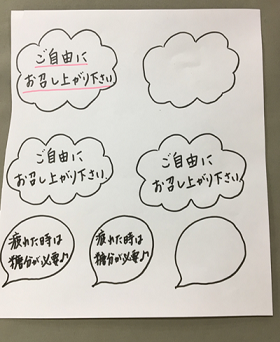 ご自由に
お召し上がり下さい
ご自由に
お召し上がり下さい
ご自由に
お召し上がり下さい
疲れた時は
糖分が必要♪
疲れた時は
糖分が必要♪